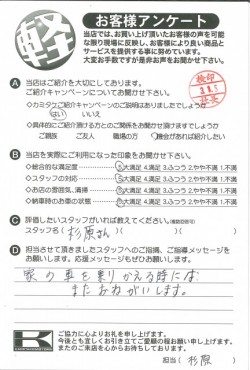 軽
お客様アンケート
当店では、お買い上げ頂いたお客様の声を可能な限り現場に反映し、お客様により良い商品とサービスを提供する事に努めています。
大変お手数ですが是非お声をお聞かせ下さい。
A 当店はご紹介を大切にしております。
ご紹介キャンペーンについてお聞かせ下さい。
◇カミタケご紹介キャンペーンのご説明はありましたでしょうか
はい いいえ
◇具体的にご紹介頂ける方とのご関係をお聞かせ頂けますでしょうか
ご親族 ご友人 職場の方 機会があれば紹介したい
B 当店を実際にご利用になった印象をお聞かせ下さい。
◇総合的な満足度 5.大満足 4.満足 3.ふつう 2.やや不満 1.不満
◇スタッフの対応 5.大満足 4.満足 3.ふつう 2.やや不満 1.不満
◇お店の雰囲気、清掃 5.大満足 4.満足 3.ふつう 2.やや不満 1.不満
◇納車時のお車の状態 5.大満足 4.満足 3.ふつう 2.やや不満 1.不満
C 辞退したいスタッフがいれば教えてください。
スタッフ名( 杉原さん )( )
D 担当させて頂きましたスタッフへのご指摘、ご指導メッセージをお願いします。応援メッセージもぜひお願い致します。
家の車を乗りかえる時には
またおねがいします。
K
ご協力に心よりお礼を申し上げます。
今後とも宜しくお引き立てご愛顧の程お願い申し上げます。
またのご来店を心からお待ちしております。
担当( 杉原 )